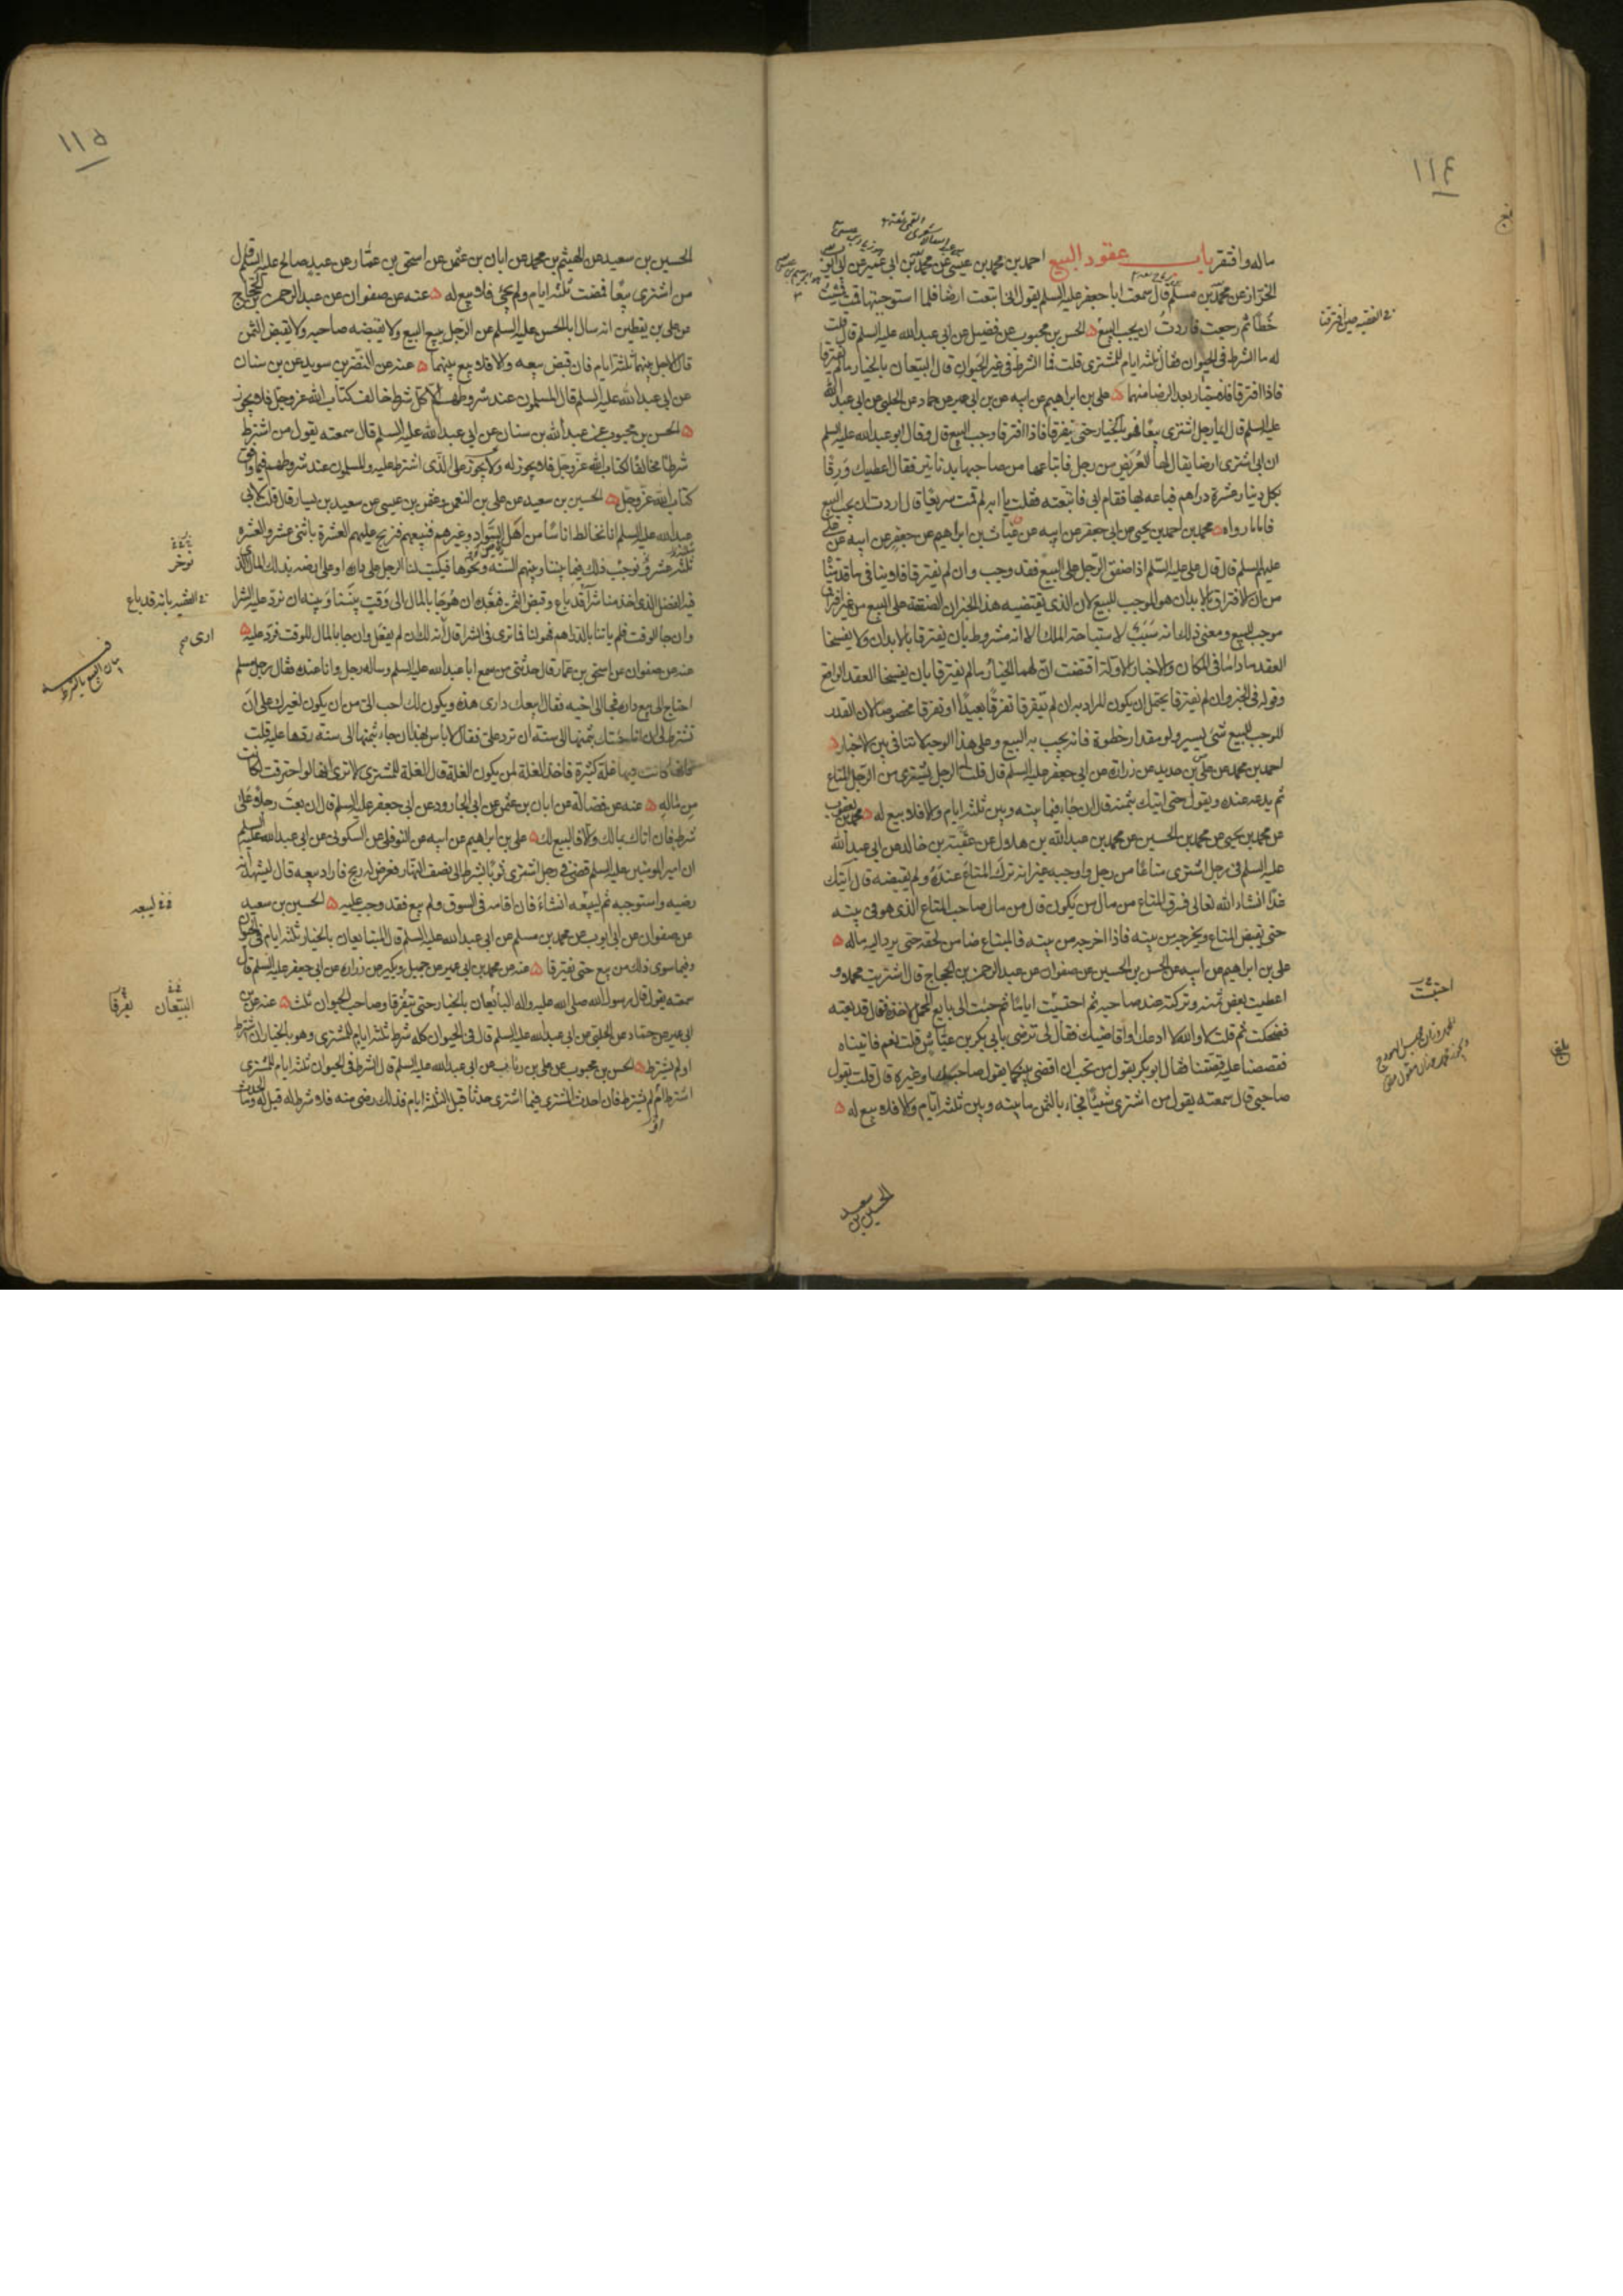 ١١٤
ماله وافتقر باب عقود البيع احمد بن محمد بن عيسى عن محمد بن ابي عمير عن ابي ايوب
الخزاز عن محمد بن مسلم قال سمعت ابا جعفر عليه السلم يقول اني ابتعت ارضا فلما استوجبتها قمت فمشيت
خطا ثم رجعت فاردت ان يجب البيع الحسن بن محبوب عن فضيل عن ابي عبد الله عليه السلم قال قلت
له ما الشرط في الحيوان فقال ثلثه ايام للمشتري قلت فما الشرط في غير الحيوان قال البيعان بالخيار ما لم يفترقا
فاذا افترقا فلا خيار بعد الرضا منهما علي بن ابراهيم عن ابيه عن بن ابي عمير عن حماد عن الحلبي عن ابي عبد الله
عليه السلم قال ايما رجل اشترى بيعا فهو بالخيار حتى يفترقا فاذا افترقا وجب البيع قال وقال ابو عبد الله عليه السلم
ان ابي اشترى ارضا يقال لها العريض من رجل فابتاعها من صاحبها بدنانير فقال اعطيك ورقا
بكل دينار عشرة دراهم فباعه بها فقام ابي فاتبعته فقلت يا ابه لم قمت سريعا قال اردت ان يجب البيع
فاما ما رواه محمد بن احمد بن يحيى عن ابي جعفر عن ابيه عن غياث بن ابراهيم عن جعفر عن ابيه عن علي
عليهم السلم قال قال علي عليه السلم اذا صفق الرجل على البيع فقد وجب وان لم يفترقا فلا ينافي ما قدمنا
من ان الافتراق بالابدان هو الموجب للبيع لان الذي يقتضيه هذا الخبر ان الصفقة على البيع من غير افتراق
موجب للبيع ومعنى ذلك انه سبب لاستباحة الملك الا انه مشروط بان يفترقا بالابدان ولا يفسخا
العقد ما داما في المكان والاخبار الاولة اقتضت ان لهما الخيار ما لم يفترقا بان يفسخا العقد الواقع
وقوله في الخبر وان لم يفترقا يحتمل ان يكون المراد به ان لم يتفرقا تفرقا بعيدا او تفرقا مخصوصا لان القدر
الموجب للبيع شئ يسير ولو مقدار خطوة فانه يجب به البيع وعلى هذا الوجه لا تنافي بين الاخبار
احمد بن محمد عن علي بن حديد عن زرارة عن ابي جعفر عليه السلم قال قلت الرجل يشتري من الرجل المتاع
ثم يدعه عنده ويقول حتى اتيك بثمنه قال ان جاء فيما بينه وبين ثلثه ايام والا فلا بيع له محمد بن يعقوب
عن محمد بن يحيى عن محمد بن الحسين عن محمد بن عبد الله بن هلال عن عقبة بن خالد عن ابي عبد الله
عليه السلم في رجل اشترى متاعا من رجل واوجبه غير انه ترك المتاع عنده ولم يقبضه قال آتيك
غدا انشاء الله تعالى فسرق المتاع من مال من يكون قال من مال صاحب المتاع الذي هو في بيته
حتى يقبض المتاع ويخرجه من بيته فاذا اخرجه من بيته فالمبتاع ضامن لحقه حتى يرد اليه ماله
علي بن ابراهيم عن ابيه عن الحسن بن الحسين عن صفوان عن عبد الرحمن بن الحجاج قال اشتريت محملا و
اعطيت بعض ثمنه وتركته عند صاحبه ثم احتبست اياما ثم جئت الى بايع المحمل لاخذه فقال قد بعته
فضحكت ثم قلت لا والله لا ادعك او اقاضيك فقال لي ترضى بابي بكر بن عياش قلت نعم فاتيناه
فقصصنا عليه قصتنا فقال ابو بكر بقول من تحب ان اقضي بينكما بقول صاحبك او غيره قال قلت بقول
صاحبي قال سمعته يقول من اشترى شيئا فجاء بالثمن ما بينه وبين ثلثه ايام والا فلا بيع له
احتبست
بلغ
الحسين بن سعيد
١١٥
الحسين بن سعيد عن الهيثم بن محمد عن ابان بن عثمن عن اسحق بن عمار عن عبد صالح عليه السلم قال
من اشترى بيعا فمضت ثلثه ايام ولم يجئ فلا بيع له عنه عن صفوان عن عبد الرحمن بن الحجاج
عن علي بن يقطين انه سال ابا الحسن عليه السلم عن الرجل يبيع البيع ولا يقبضه صاحبه ولا يقبض الثمن
قال الاجل بينهما ثلثه ايام فان قبض بيعه والا فلا بيع بينهما عنه عن النضر بن سويد عن بن سنان
عن ابي عبد الله عليه السلم قال المسلمون عند شروطهم الا كل شرط خالف كتاب الله عز وجل فلا يجوز
الحسن بن محبوب عن عبد الله بن سنان عن ابي عبد الله عليه السلم قال سمعته يقول من اشترط
شرطا مخالفا لكتاب الله عز وجل فلا يجوز له ولا يجوز على الذي اشترط عليه والمسلمون عند شروطهم فيما وافق
كتاب الله عز وجل الحسين بن سعيد عن علي بن النعمن عن عثمن بن عيسى عن سعيد بن يسار قال قلت لابي
عبد الله عليه السلم انا نخالط اناسا من اهل السواد وغيرهم فنبيعهم فنربح عليهم العشرة باثنى عشر والعشره
ثلثه عشر ونوجب ذلك فيما بيننا وبينهم السنه ونحوها فيكتب لنا الرجل على داره او على ارضه بذلك المال الذي
فيه الفضل الذي اخذ منا شرآ قد باع وقبض الثمن فنعده ان هو جا بالمال الى وقت بيننا وبينه ان نرد عليه الشرا
وان جا الوقت فلم ياتنا بالدراهم فهو لنا فما ترى في الشرا قال ارى انه لك ان لم يفعل وان جا بالمال للوقت فرد عليه
عنه عن صفوان عن اسحق بن عمار قال حدثني من سمع ابا عبد الله عليه السلم وساله رجل وانا عنده فقال رجل مسلم
احتاج الى بيع داره فجا الى اخيه فقال ابيعك داري هذه ويكون لك احب الي من ان يكون لغيرك على ان
تشترط لي ان انا جئتك بثمنها الى سنه ان ترد علي فقال لا باس بهذا ان جاء بثمنها الى سنه ردها عليه قلت
فانها كانت فيها غلة كثيرة فاخذ الغلة لمن يكون الغلة قال الغلة للمشتري الا ترى انها لو احترقت لكانت
من ماله عنه عن فضالة عن ابان بن عثمن عن ابي الجارود عن ابي جعفر عليه السلم قال ان بعت رجلا على
شرط فان اتاك بمالك والا فالبيع لك علي بن ابراهيم عن ابيه عن النوفلي عن السكوني عن ابي عبد الله عليه السلم
ان امير المومنين عليه السلم قضى في رجل اشترى ثوبا بشرط الى نصف النهار فعرض له ربح فاراد بيعه قال ليشهد انه
رضيه واستوجبه ثم ليبعه انشاء فان اقامه في السوق ولم يبع فقد وجب عليه الحسين بن سعيد
عن صفوان عن ابي ايوب عن محمد بن مسلم عن ابي عبد الله عليه السلم قال المتبايعان بالخيار ثلثه ايام في الحيوان
وفيما سوى ذلك من بيع حتى يفترقا عنه عن محمد بن ابي عمير عن جميل وبكير عن زرارة عن ابي جعفر عليه السلم قال
سمعته يقول قال رسول الله صلى الله عليه واله البائعان بالخيار حتى يتفرقا وصاحب الحيوان ثلث عنه عن بن
ابي عمير عن حماد عن الحلبي عن ابي عبد الله عليه السلم قال في الحيوان كله شرط ثلثه ايام للمشتري وهو بالخيار ان اشترط
او لم يشترط الحسن بن محبوب عن علي بن رئاب عن ابي عبد الله عليه السلم قال الشرط في الحيوان ثلثه ايام للمشتري
اشترط ام لم يشترط فان احدث المشتري فيما اشترى حدثا قبل الثلثه ايام فذلك رضى منه فلا شرط له قيل له وما الحدث
نوخر
في الفقيه بانه قد باع
ارى
ليبعه
البيعان
يفرقا